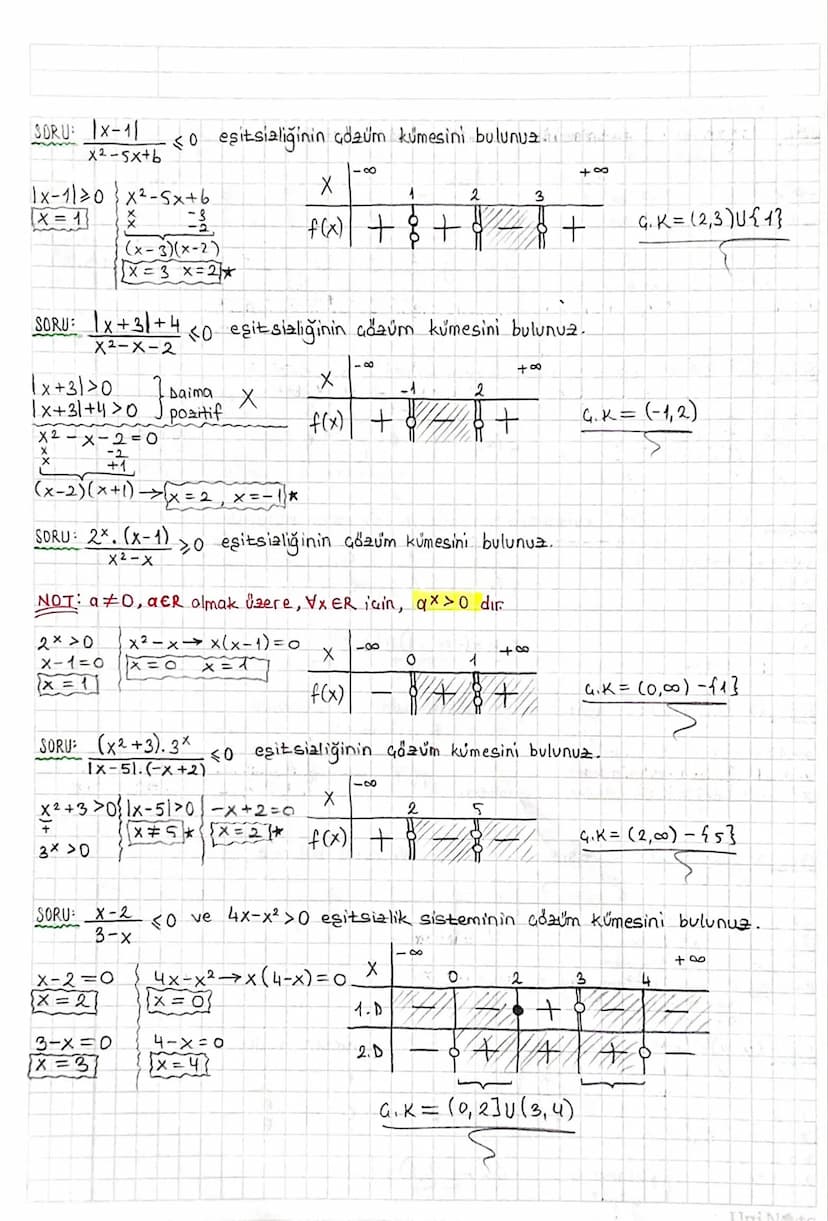 SORU: |x-1| / x²-5x+6 ≤ 0 eşitsizliğinin çözüm kümesini bulunuz.
|x-1|≥0 x²-5x+6
x = 1 x -3
x -2
(x-3)(x-2)
x = 3 x = 2 *
x -∞ 1 2 3 +∞
f(x) + + - +
Ç.K = (2,3)U{1}
SORU: |x+3|+4 / x²-x-2 ≤0 eşitsizliğinin çözüm kümesini bulunuz.
|x+3|>0 } Daima
|x+3|+4>0 } pozitif X
x²-x-2=0
x -2
x +1
(x-2)(x+1)→ x=2, x=-1 *
x -∞ -1 2 +∞
f(x) + - +
Ç.K = (-1,2)
SORU: 2ˣ.(x-1) / x²-x ≥0 eşitsizliğinin çözüm kümesini bulunuz.
NOT: a≠0, a∈R olmak üzere, ∀x∈R için, aˣ>0 dır.
2ˣ >0 x²-x→ x(x-1)=0
x-1=0 x=0 x=1
x = 1
x -∞ 0 1 +∞
f(x) - + +
Ç.K = (0,∞) -{1}
SORU: (x²+3).3ˣ / |x-5|.(-x+2) ≤0 eşitsizliğinin çözüm kümesini bulunuz.
x²+3 >0 |x-5|>0 -x+2=0
+ x≠5 * x=2 *
3ˣ >0
x -∞ 2 5
f(x) + - -
Ç.K = (2,∞) -{5}
SORU: x-2 / 3-x ≤0 ve 4x-x²>0 eşitsizlik sisteminin çözüm kümesini bulunuz.
x-2=0 4x-x²→x(4-x)=0
x=2 x=0
3-x=0 4-x=0
x=3 x=4
x -∞ 0 2 3 4 +∞
1.D - - + - -
2.D - + + + -
Ç.K = (0,2]U(3,4)